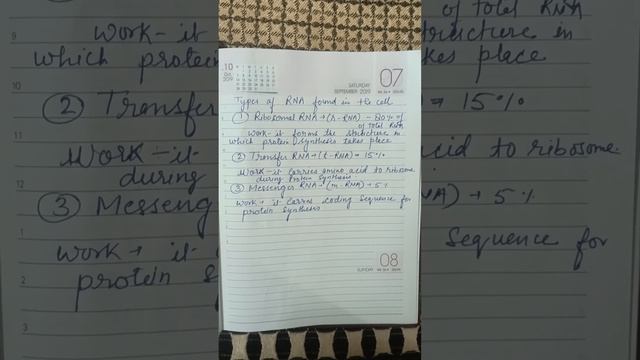 10
OCT 2019
SATURDAY
SEPTEMBER 2019
07
Types of RNA found in the cell
① Ribosomal RNA → (r-RNA) - 80% of
of total RNA
work - it forms the structure in
which protein synthesis takes place
② Transfer RNA → (t-RNA) = 15%
Work - it carries amino acid to ribosome
during Protein synthesis
③ Messenger RNA → (m-RNA) → 5%
work → it carries coding sequence for
protein synthesis
SUNDAY
08
of total RNA
work - it
structure in
which protein
takes place
② Transfer
= 15%
Work - it
acid to ribosome.
during
③ Messeng
NA) → 5%
work → it
Sequence for
protein s